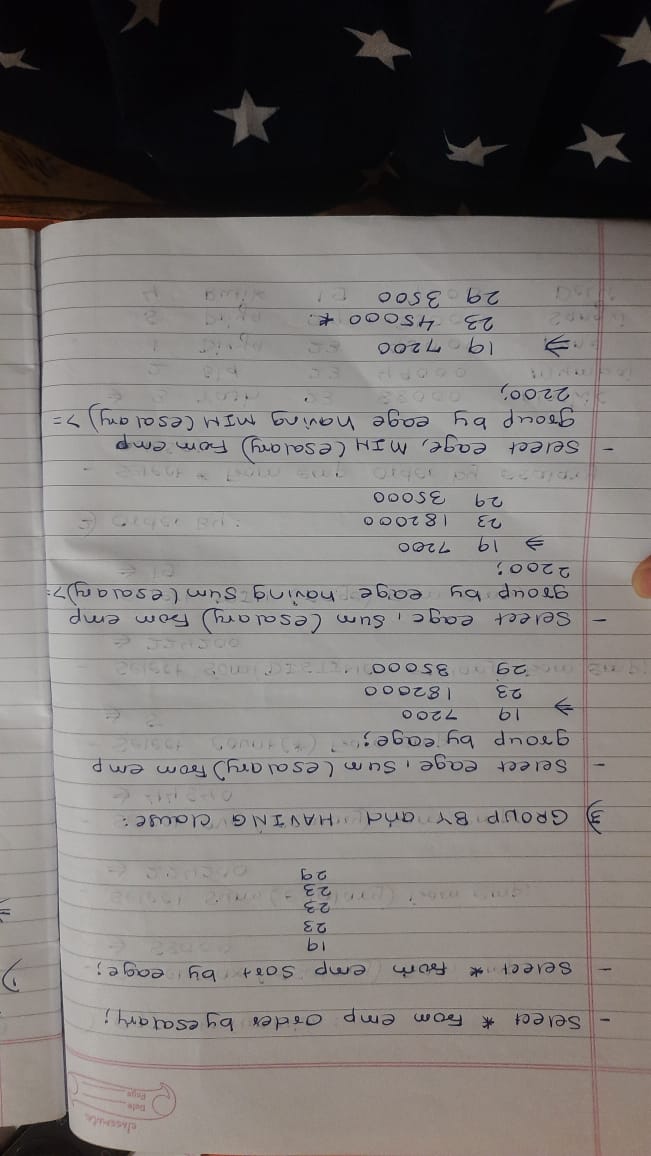 classmate
Date
Page
- Select * from emp order by esalary;
- Select * from emp Sort by eage;
19
23
23
23
29
3) GROUP BY and HAVING clause:
- Select eage, Sum (esalary) from emp
group by eage;
⇒ 19 7200
23 182000
29 35000
- Select eage, Sum (esalary) from emp
group by eage having Sum (esalary) >=
2200;
⇒ 19 7200
23 182000
29 35000
- Select eage, MIN (esalary) from emp
group by eage having MIN (esalary) >=
2200;
⇒ 19 7200
23 45000 *
29 3500